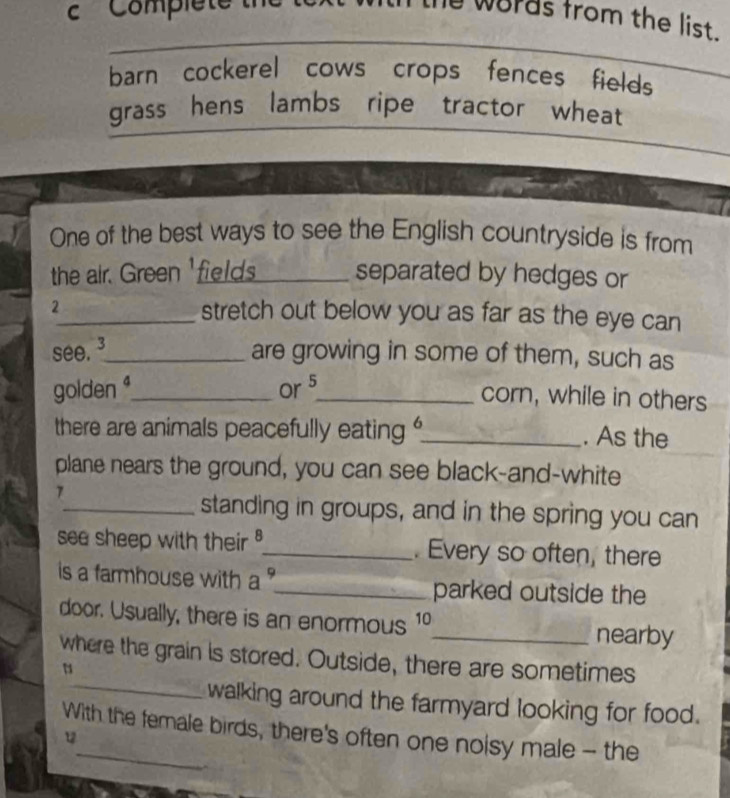 c Complete the text with the words from the list.
barn cockerel cows crops fences fields
grass hens lambs ripe tractor wheat
One of the best ways to see the English countryside is from
the air. Green ¹fields________ separated by hedges or
²____________ stretch out below you as far as the eye can
see. ³____________ are growing in some of them, such as
golden ⁴____________ or ⁵____________ corn, while in others
there are animals peacefully eating ⁶____________. As the
plane nears the ground, you can see black-and-white
⁷____________ standing in groups, and in the spring you can
see sheep with their ⁸____________. Every so often, there
is a farmhouse with a ⁹____________ parked outside the
door. Usually, there is an enormous ¹⁰____________ nearby
where the grain is stored. Outside, there are sometimes
¹¹____________ walking around the farmyard looking for food.
With the female birds, there's often one noisy male – the
¹²____________.